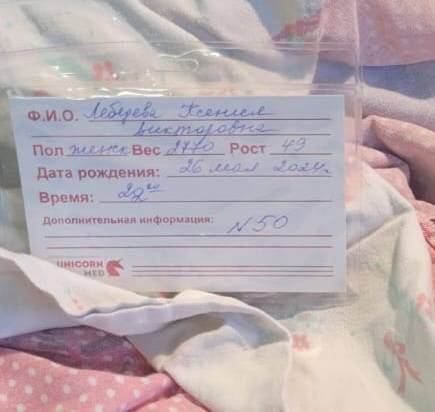 Ф.И.О. Лебедева Ксения
Викторовна
Пол женск Вес 2770 Рост 49
Дата рождения: 26 мая 2024г.
Время: 22
Дополнительная информация:
N 50
UNICORN
MED